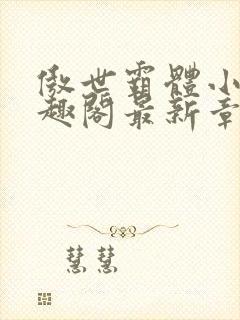 傲世霸體小
趣閣最新章
慧慧